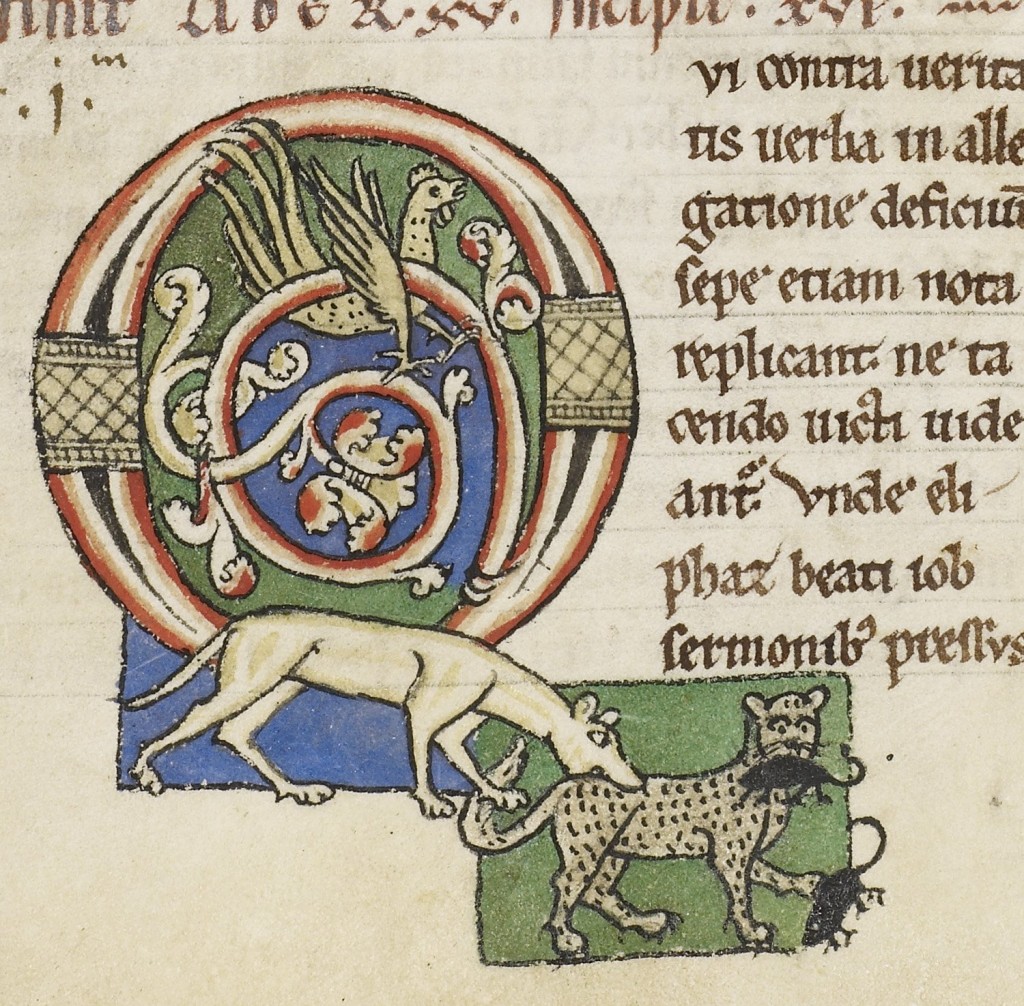 LIBER. XV. Incipit. XVI.
.j.
Q
vi contra uerita
tis uerba in alle
gatione deficiūt
sepe etiam nota
replicant ne ta
cendo uicti uide
ant᷑ Vnde eli
phaz beati iob
sermonibꝰ pressus